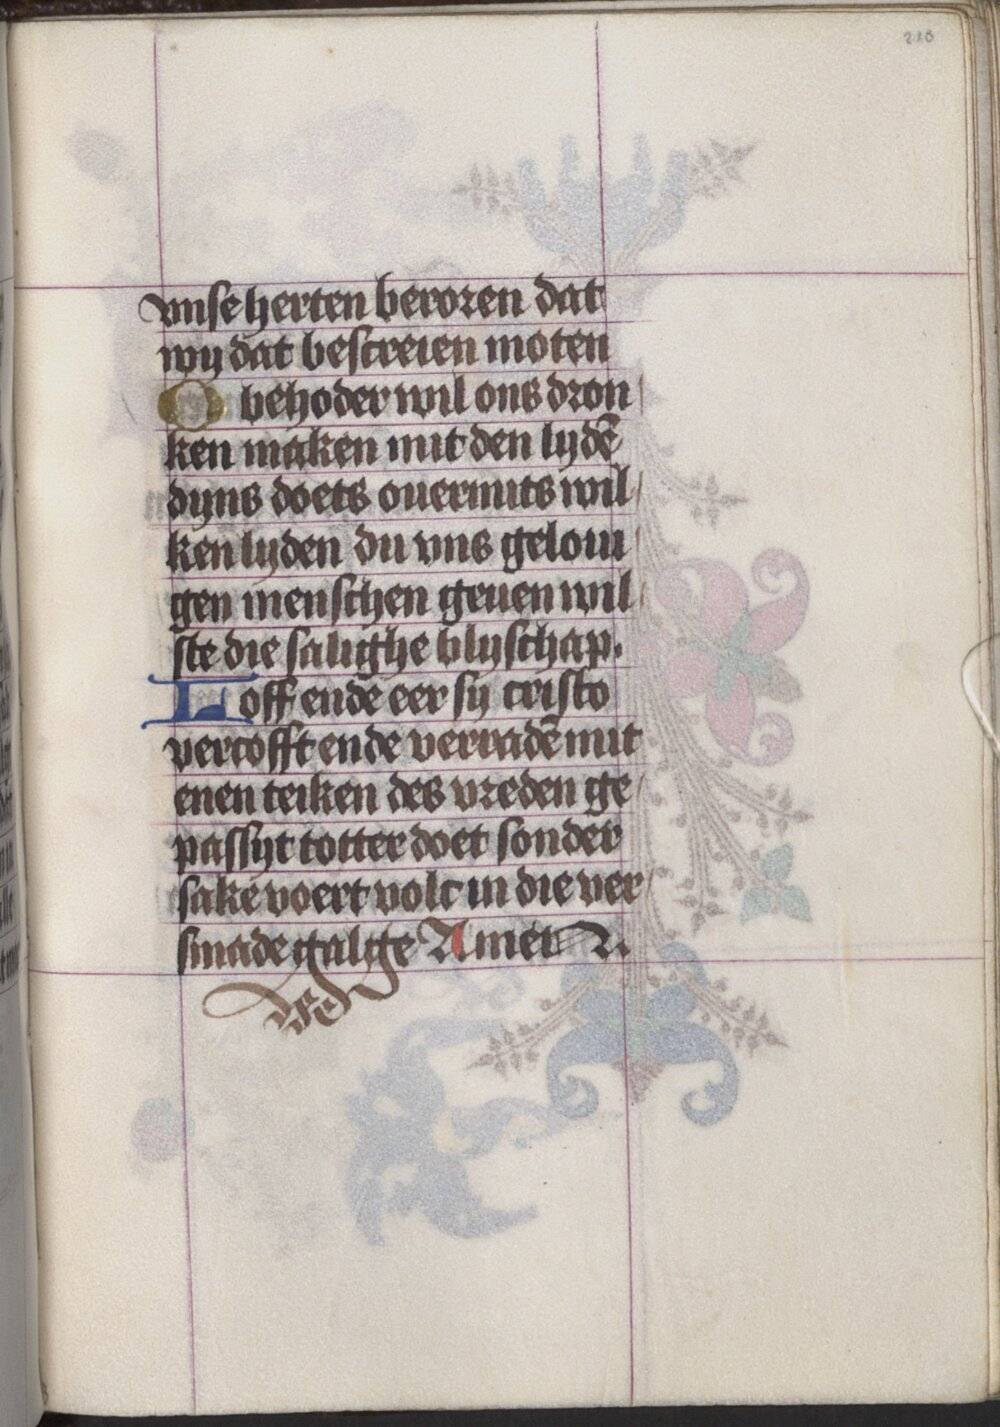 210
vnse herten beroren dat
wy dat bescreien moten
O behoder wil ons dron
ken maken mit den lydē
dyns doets ouermits wil
ken lyden du vns geloui
gen menschen geuen wil
ste die salighe blyschap.
Loff ende eer sy cristo
vercofft ende verradē mit
enen teiken des vreden ge
passyt totter doet sonder
sake voert volc in die ver
smade galge Amen